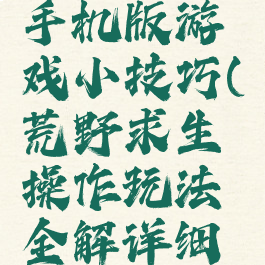 手机版游
戏小技巧(
荒野求生
操作玩法
全解详细